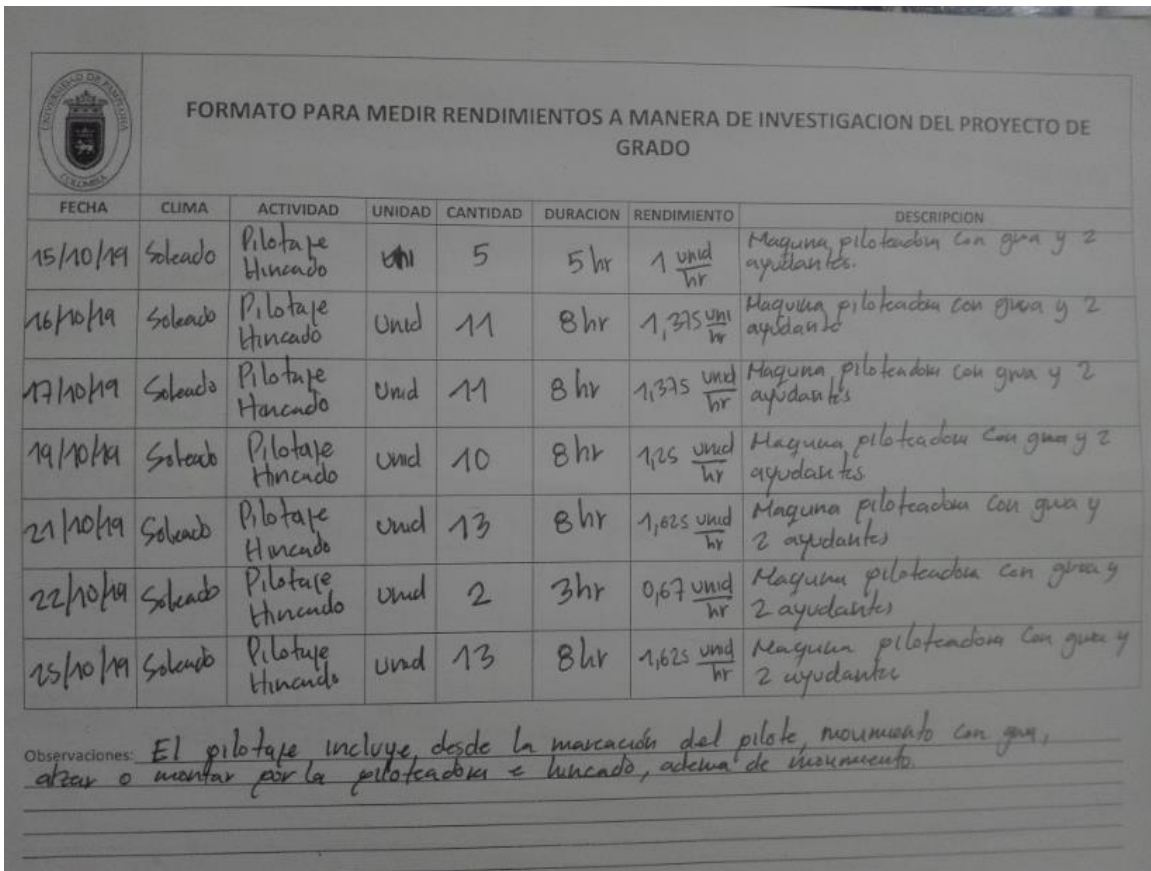 UNIVERSIDAD DE PAMPLONA
COLOMBIA
FORMATO PARA MEDIR RENDIMIENTOS A MANERA DE INVESTIGACION DEL PROYECTO DE
GRADO
FECHA CLIMA ACTIVIDAD UNIDAD CANTIDAD DURACION RENDIMIENTO DESCRIPCION
15/10/19 Soleado Pilotaje Hincado 5 5 hr 1 unid/hr Maquina piloteadora con grua y 2
ayudantes.
16/10/19 Soleado Pilotaje Hincado Unid 11 8 hr 1,375 uni/hr Maquina piloteadora con grua y 2
ayudante
17/10/19 Soleado Pilotaje Hincado Unid 11 8 hr 1,375 unid/hr Maquina piloteadora con grua y 2
ayudantes
19/10/19 Soleado Pilotaje Hincado Unid 10 8 hr 1,25 unid/hr Maquina piloteadora con grua y 2
ayudantes
21/10/19 Soleado Pilotaje Hincado Unid 13 8 hr 1,625 unid/hr Maquina piloteadora con grua y
2 ayudantes
22/10/19 Soleado Pilotaje Hincado Unid 2 3 hr 0,67 unid/hr Maquina piloteadora con grua y
2 ayudantes
25/10/19 Soleado Pilotaje Hincado Unid 13 8 hr 1,625 unid/hr Maquina piloteadora con grua y
2 ayudantes
Observaciones: El pilotaje incluye, desde la marcación del pilote, movimiento con grua,
alzar o montar por la piloteadora e hincado, ademas de movimiento.